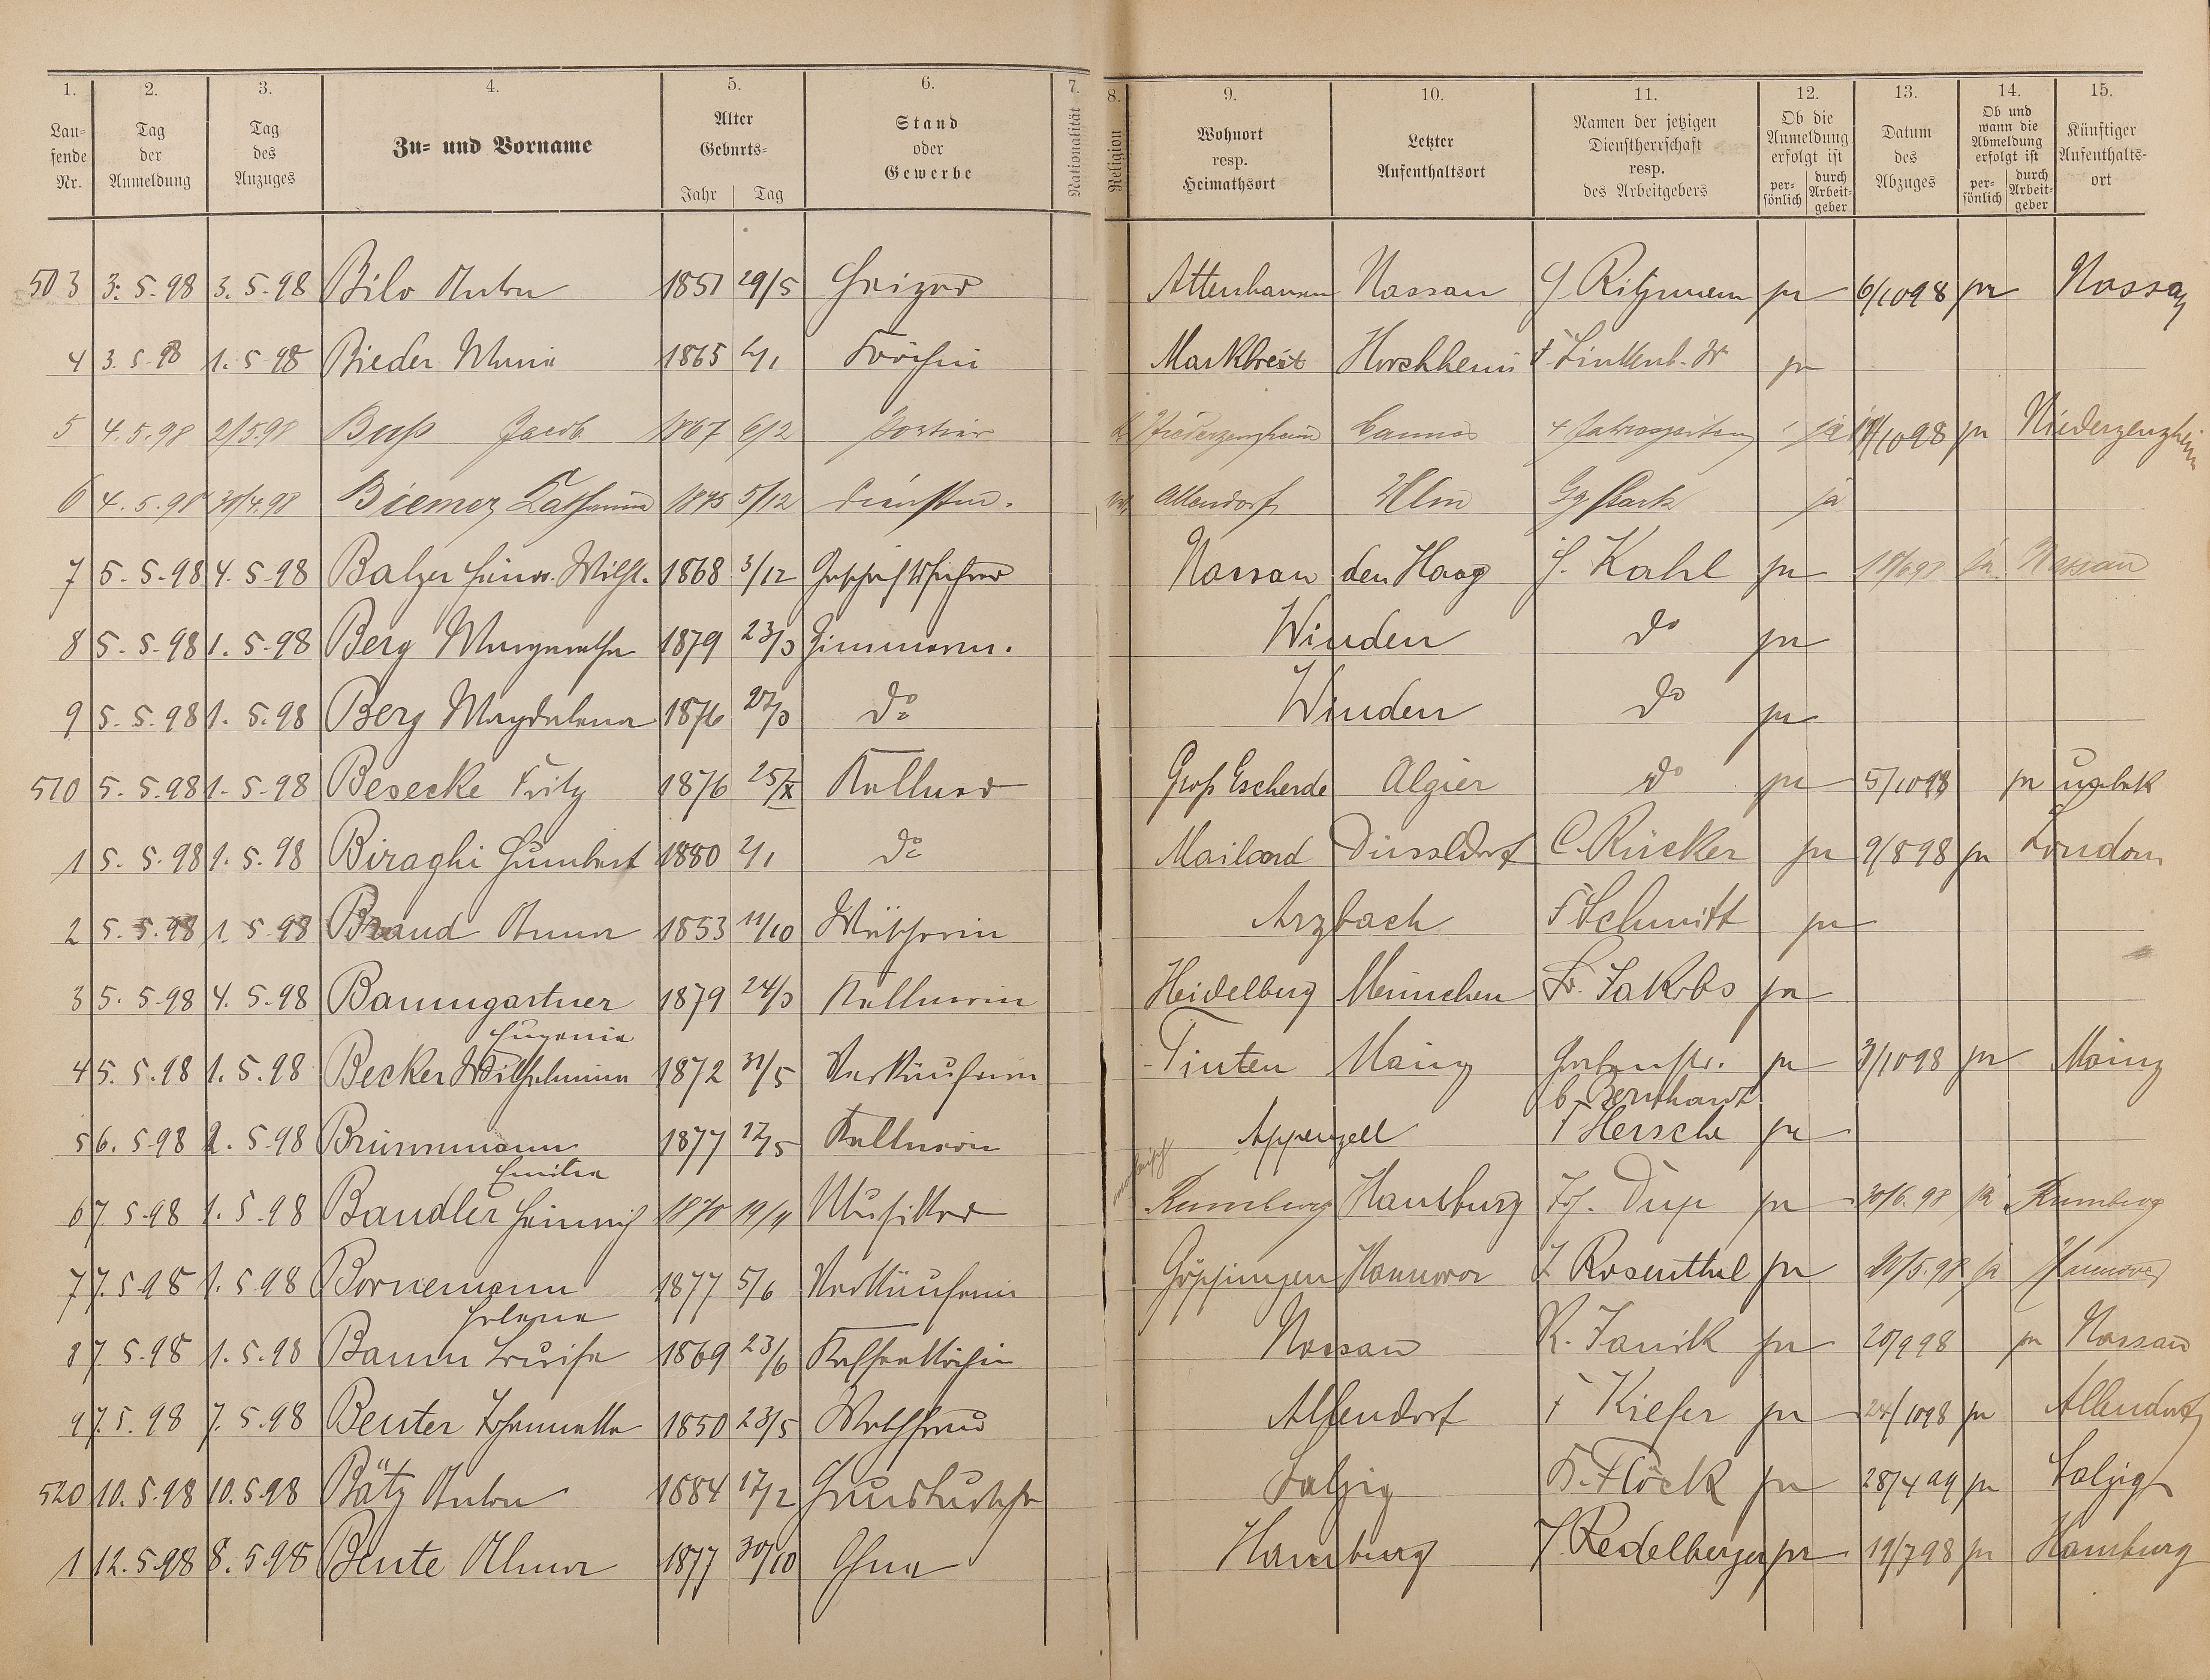 1. 2. 3. 4. 5. 6. 7. 8. 9. 10. 11. 12. 13. 14. 15.
Laufende Nr. Tag der Anmeldung Tag des Anzuges Zu- und Vorname Alter Geburts- Jahr Tag Stand oder Gewerbe Nationalität Religion Wohnort resp. Heimathsort Letzter Aufenthaltsort Namen der jetzigen Dienstherrschaft resp. des Arbeitgebers Ob die Anmeldung erfolgt ist persönlich durch Arbeitgeber Datum des Abzuges Ob und wann die Abmeldung erfolgt ist persönlich durch Arbeitgeber Künftiger Aufenthaltsort
503 3. 5. 98 3. 5. 98 Bilo Anton 1851 29/5 Heizer Attenhausen Nassau Ritzmann ja 6/10 98 ja Nassau
4 3. 5. 98 1. 5. 98 Bieder Maria 1865 Köchin Markbreit Horchheim ja
5 4. 5. 98 2/5. 98 Bop Jacob 1867 6/2 Portier Niederzeuzheim Cannes 4 Jahreszeiten ja 10 98 ja Niederzeuzheim
6 4. 5. 98 30/4. 98 Biemer Katharina 1875 5/12 Allendorf Ulm Gg Stark ja
7 5. 5. 98 4. 5. 98 Balzer Heinr. Wilh. 1868 3/12 Geschäftsführer Nassau den Haag J. Kahl ja ja Nassau
8 5. 5. 98 1. 5. 98 Berg Margaretha 1879 23/3 Zimmerm. Winden do ja
9 5. 5. 98 1. 5. 98 Berg Magdalena 1876 27/3 do Winden do ja
510 5. 5. 98 1. 5. 98 Besecke Fritz 1876 25/X Kellner Groß Escherde Algier do ja 5/10 98 ja unbek
1 5. 5. 98 1. 5. 98 Biraghi Humbert 1880 2/1 do Mailand Düsseldorf C. Rücker ja 9/8 98 ja London
2 5. 5. 98 1. 5. 98 Braud Anna 1853 11/10 Wäscherin Arzbach F Schmitt ja
3 5. 5. 98 4. 5. 98 Baumgartner 1879 24/3 Kellnerin Heidelberg München Fr. Jakobs ja
Eugenie
4 5. 5. 98 1. 5. 98 Becker Wilhelmina 1872 31/5 Verkäuferin Tinten Mainz Grabenstr. ja 3/10 98 ja Mainz
b. Bernhardt
5 6. 5. 98 2. 5. 98 Brünnmann 1877 17/5 Kellnerin Appenzell F Hersche ja
Emilia
6 7. 5. 98 1. 5. 98 Bandler Heinrich 1870 Musiker Rumburg Hamburg ja 30/6. 98 ja Rumburg
7 7. 5. 98 1. 5. 98 Bornemann 1877 5/6 Verkäuferin Göppingen Hannover J. Rosenthal ja 20/5. 98 ja Hannover
Helene
8 7. 5. 98 1. 5. 98 Baum Louise 1869 23/6 Kaffeeköchin Nassau K. Janik ja 20/9 98 ja Nassau
9 7. 5. 98 7. 5. 98 Beuter Johannette 1850 23/5 Waschfrau Allendorf F Kiefer ja 24/10 98 ja Allendorf
520 10. 5. 98 10. 5. 98 Bätz Anton 1884 17/2 Hausbursche Salzig B. Flöck ja 28/4 99 ja Salzig
1 12. 5. 98 8. 5. 98 Beute Alma 1877 30/10 Ohne Hamburg J. Redelberger ja 19/7 98 ja Hamburg